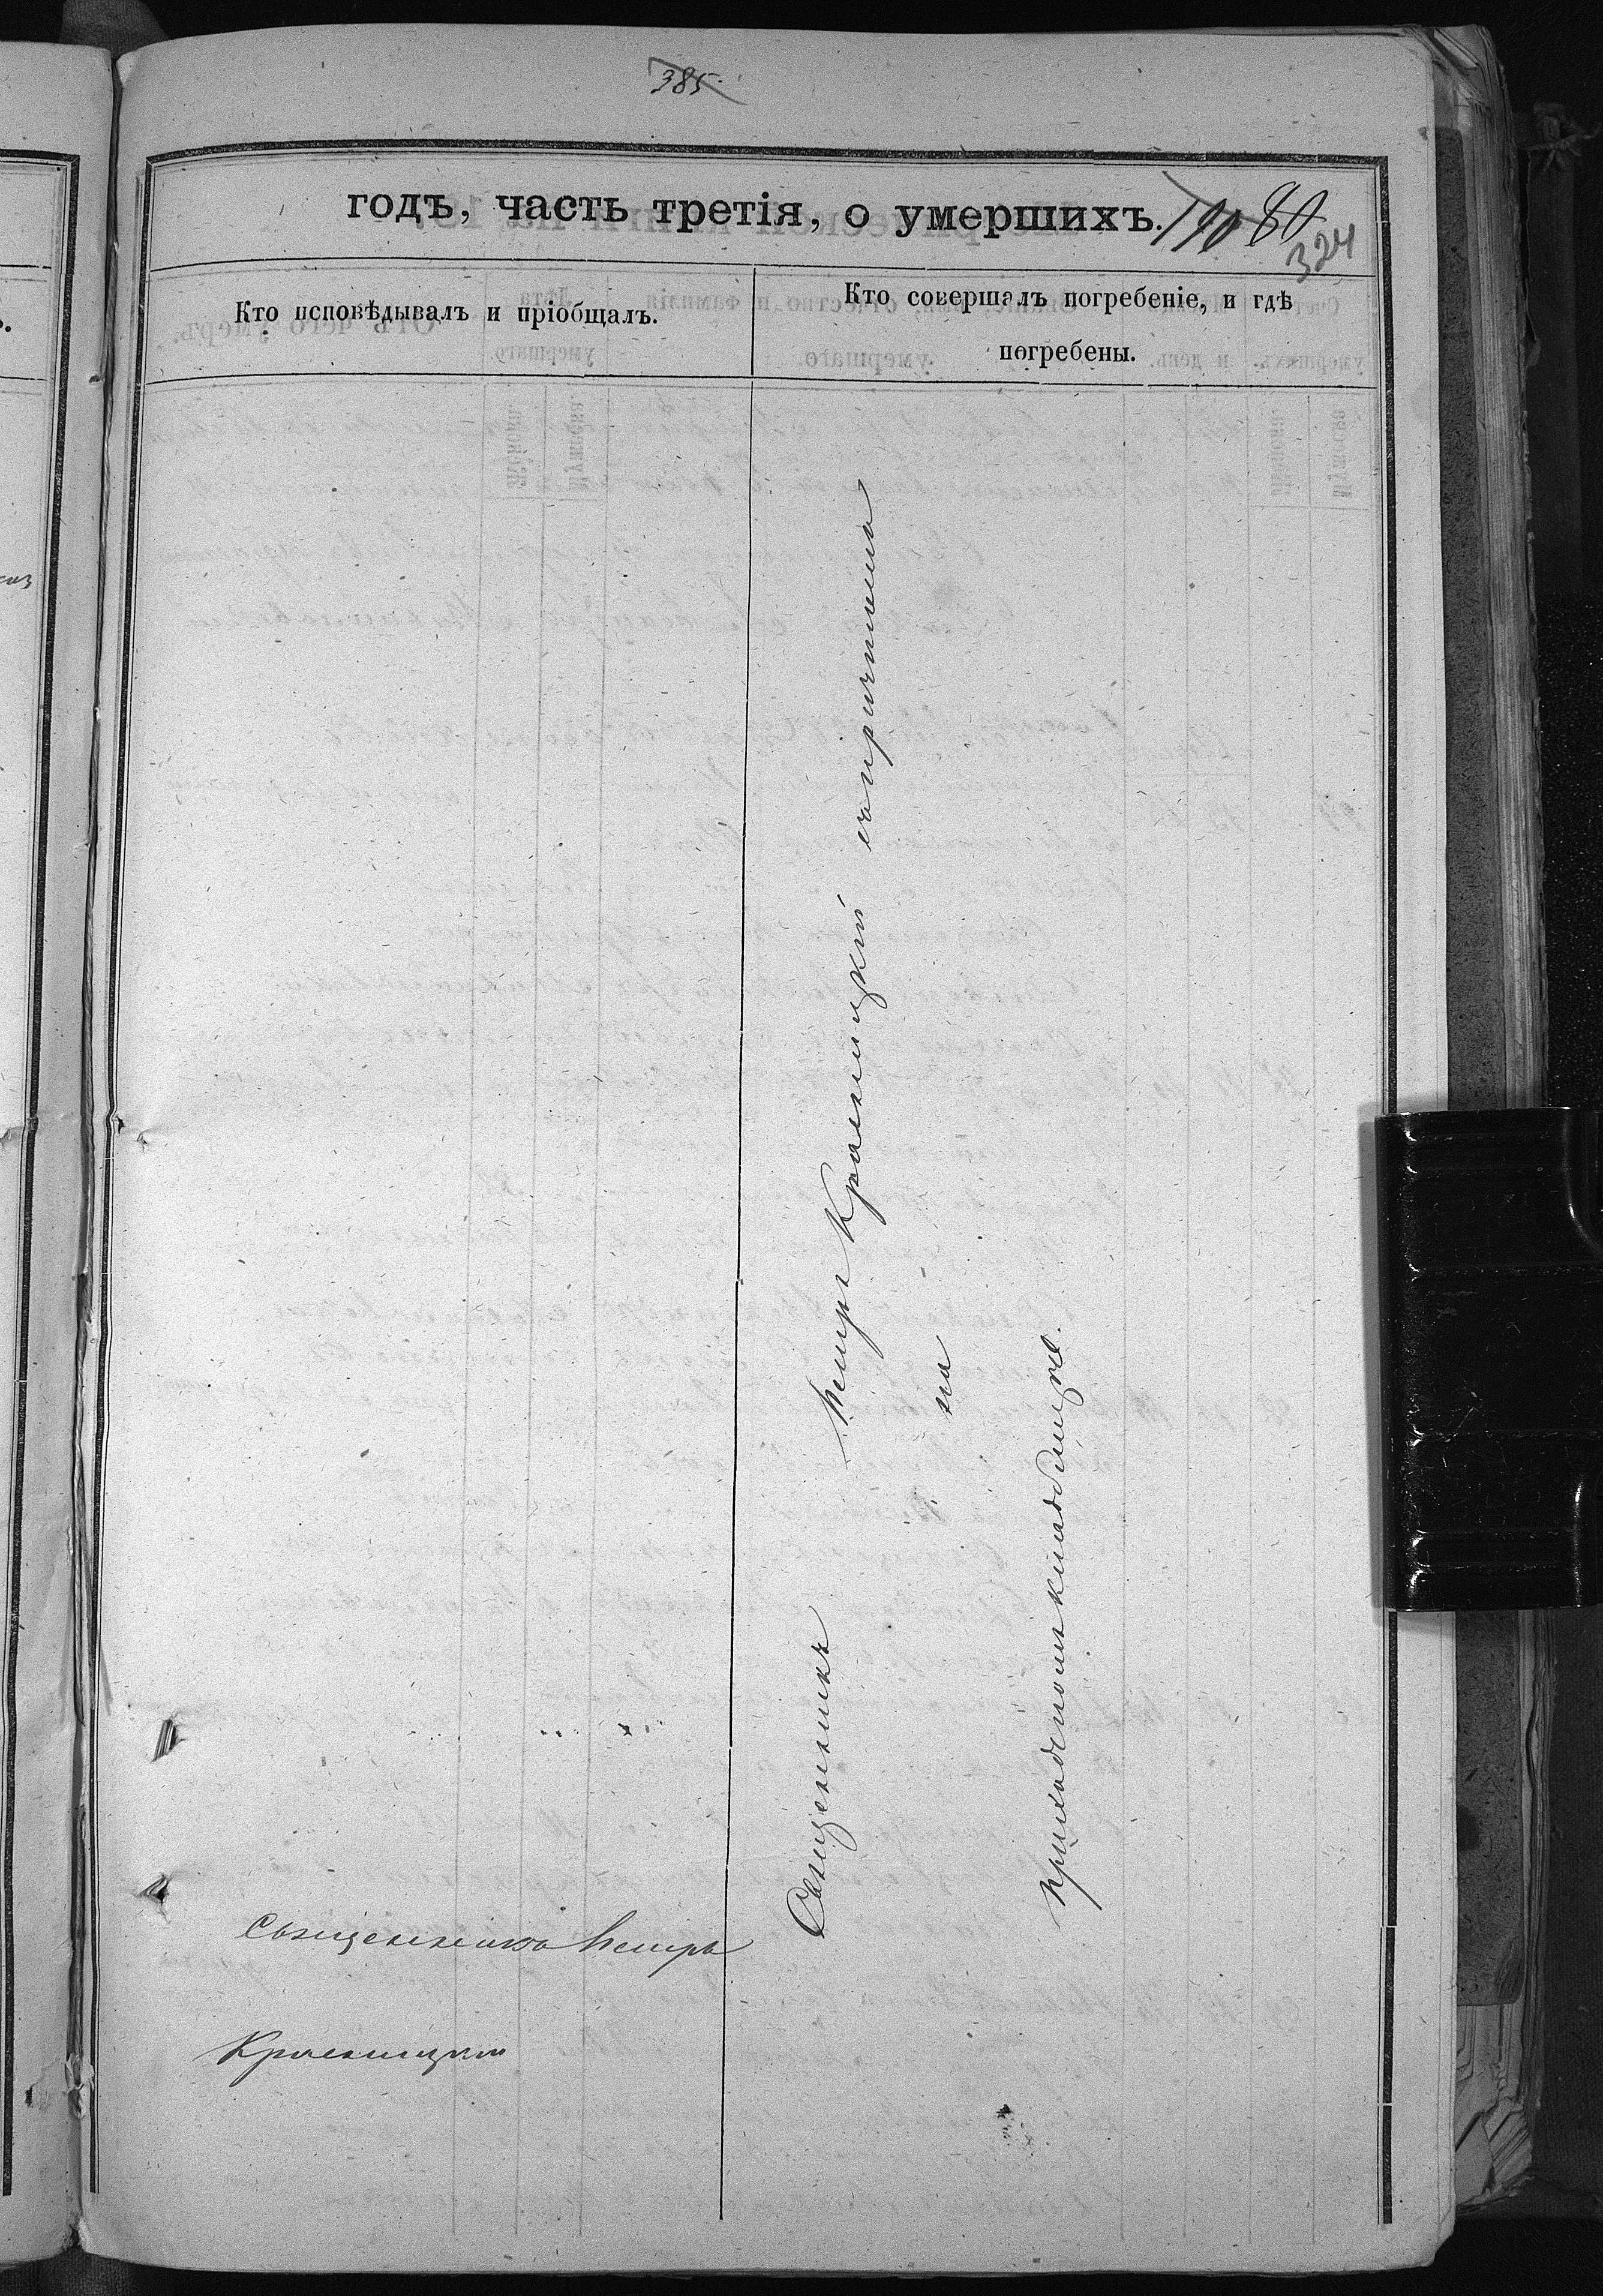 385.
годъ, часть третія, о умершихъ.
190 80
324
Кто исповѣдывалъ и пріобщалъ.
Кто совершалъ погребеніе, и гдѣ
погребены.
Священникъ Петръ Красницкій съ причтомъ
на
приходскомъ кладбищѣ.
Священникъ Петръ
Красницкій